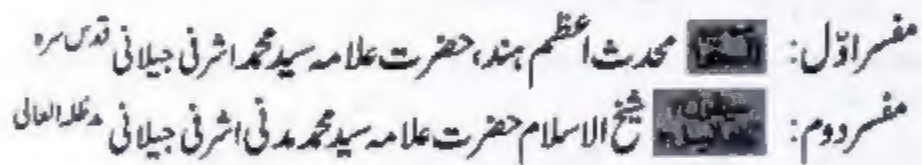 مفسر اوّل: محدث اعظم ہند، حضرت علامہ سید محمد اشرفی جیلانی قدس سرہ
مفسر دوم: شیخ الاسلام حضرت علامہ سید محمد مدنی اشرفی جیلانی مدظلہ العالی